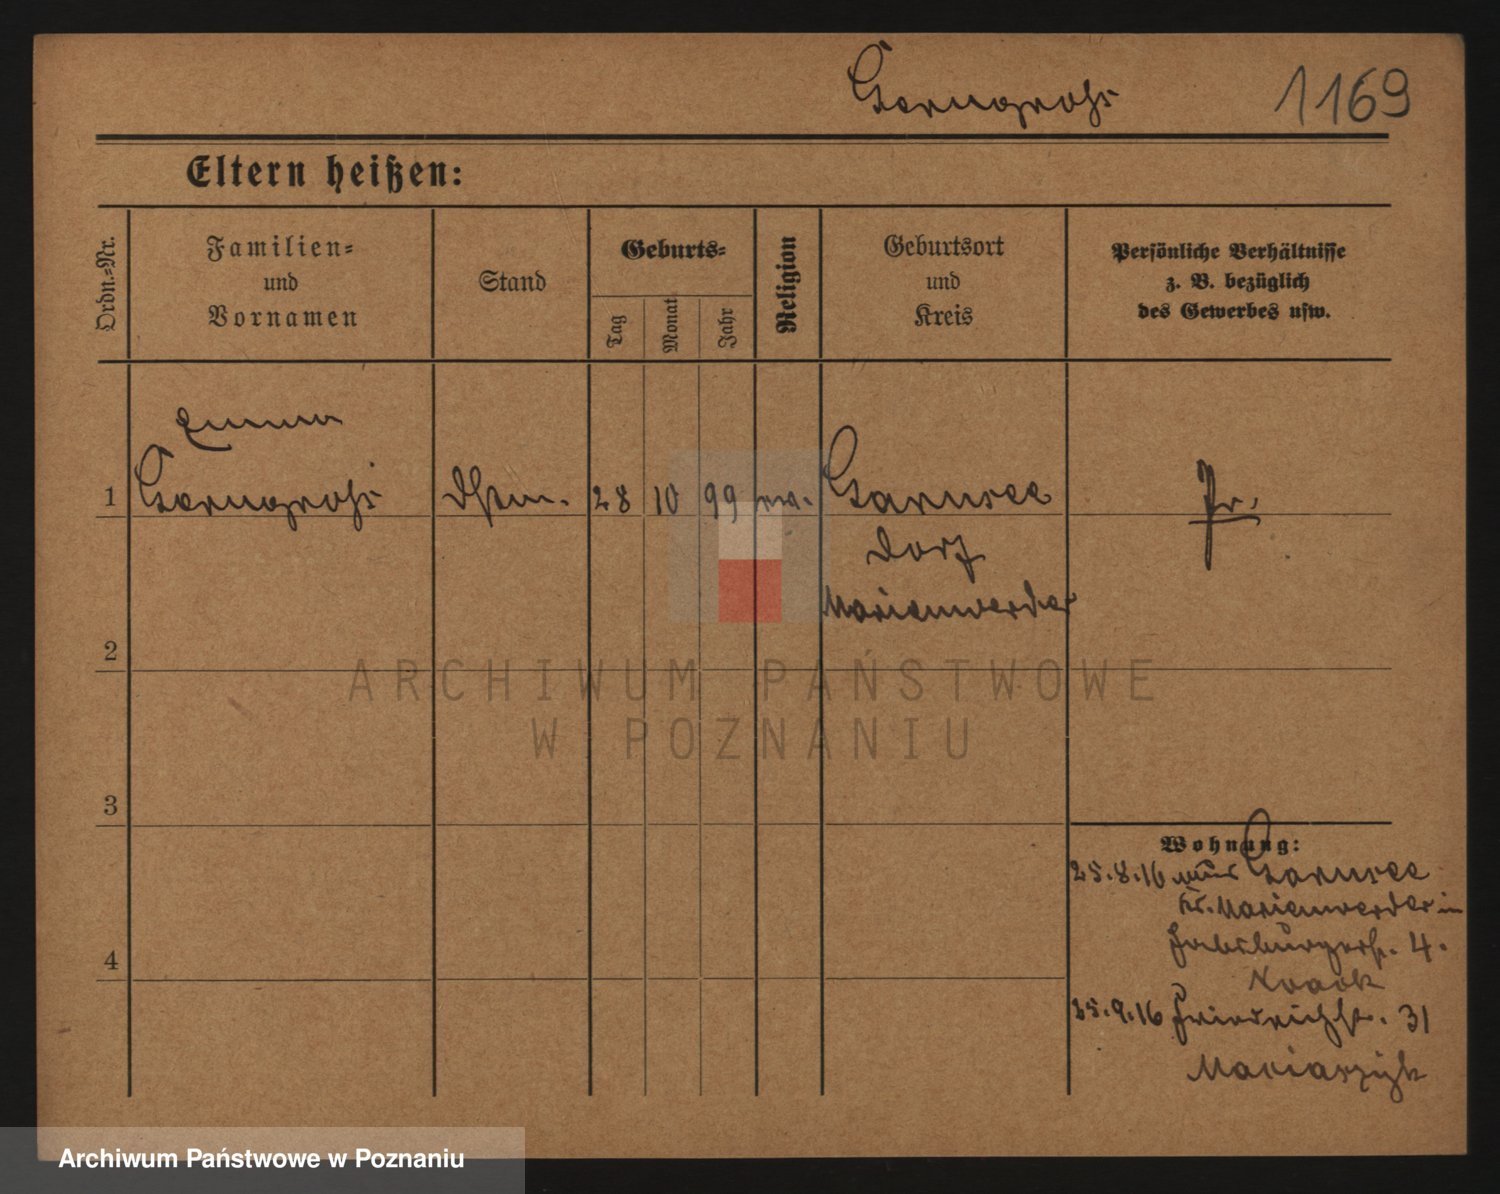 Gerngroß 1169
Eltern heißen:
Ordn.=Nr.
Familien=
und
Vornamen
Stand
Geburts=
Tag
Monat
Jahr
Religion
Geburtsort
und
Kreis
Persönliche Verhältnisse
z. B. bezüglich
des Gewerbes usw.
Emma
1 Gerngroß 28 10 99 ev. Garnsee
dorf
Marienwerder
Pr.
2
3
4
Wohnung:
25.8.16 aus Garnsee
Kr. Marienwerder in
Habsburgerstr. 4.
Noack
25.9.16 Friedrichstr. 31
ARCHIWUM PAŃSTWOWE
W POZNANIU
Archiwum Państwowe w Poznaniu